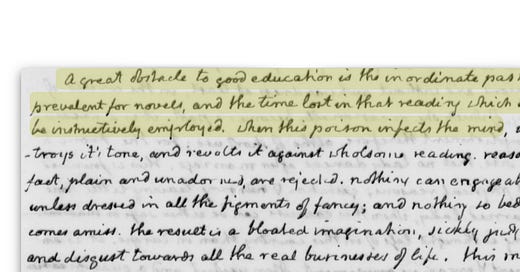 a great obstacle to good education is the inordinate pas
prevalent for novels, and the time lost in that reading which
be instructively employed. when this poison infects the mind,
-troys it's tone, and revolts it against wholsome reading. reaso
fact, plain and unadorned, are rejected. nothing can engage at
unless dressed in all the figments of fancy; and nothing so bed
comes amiss. the result is a bloated imagination, sickly jud
and disgust towards all the real businesses of life. this